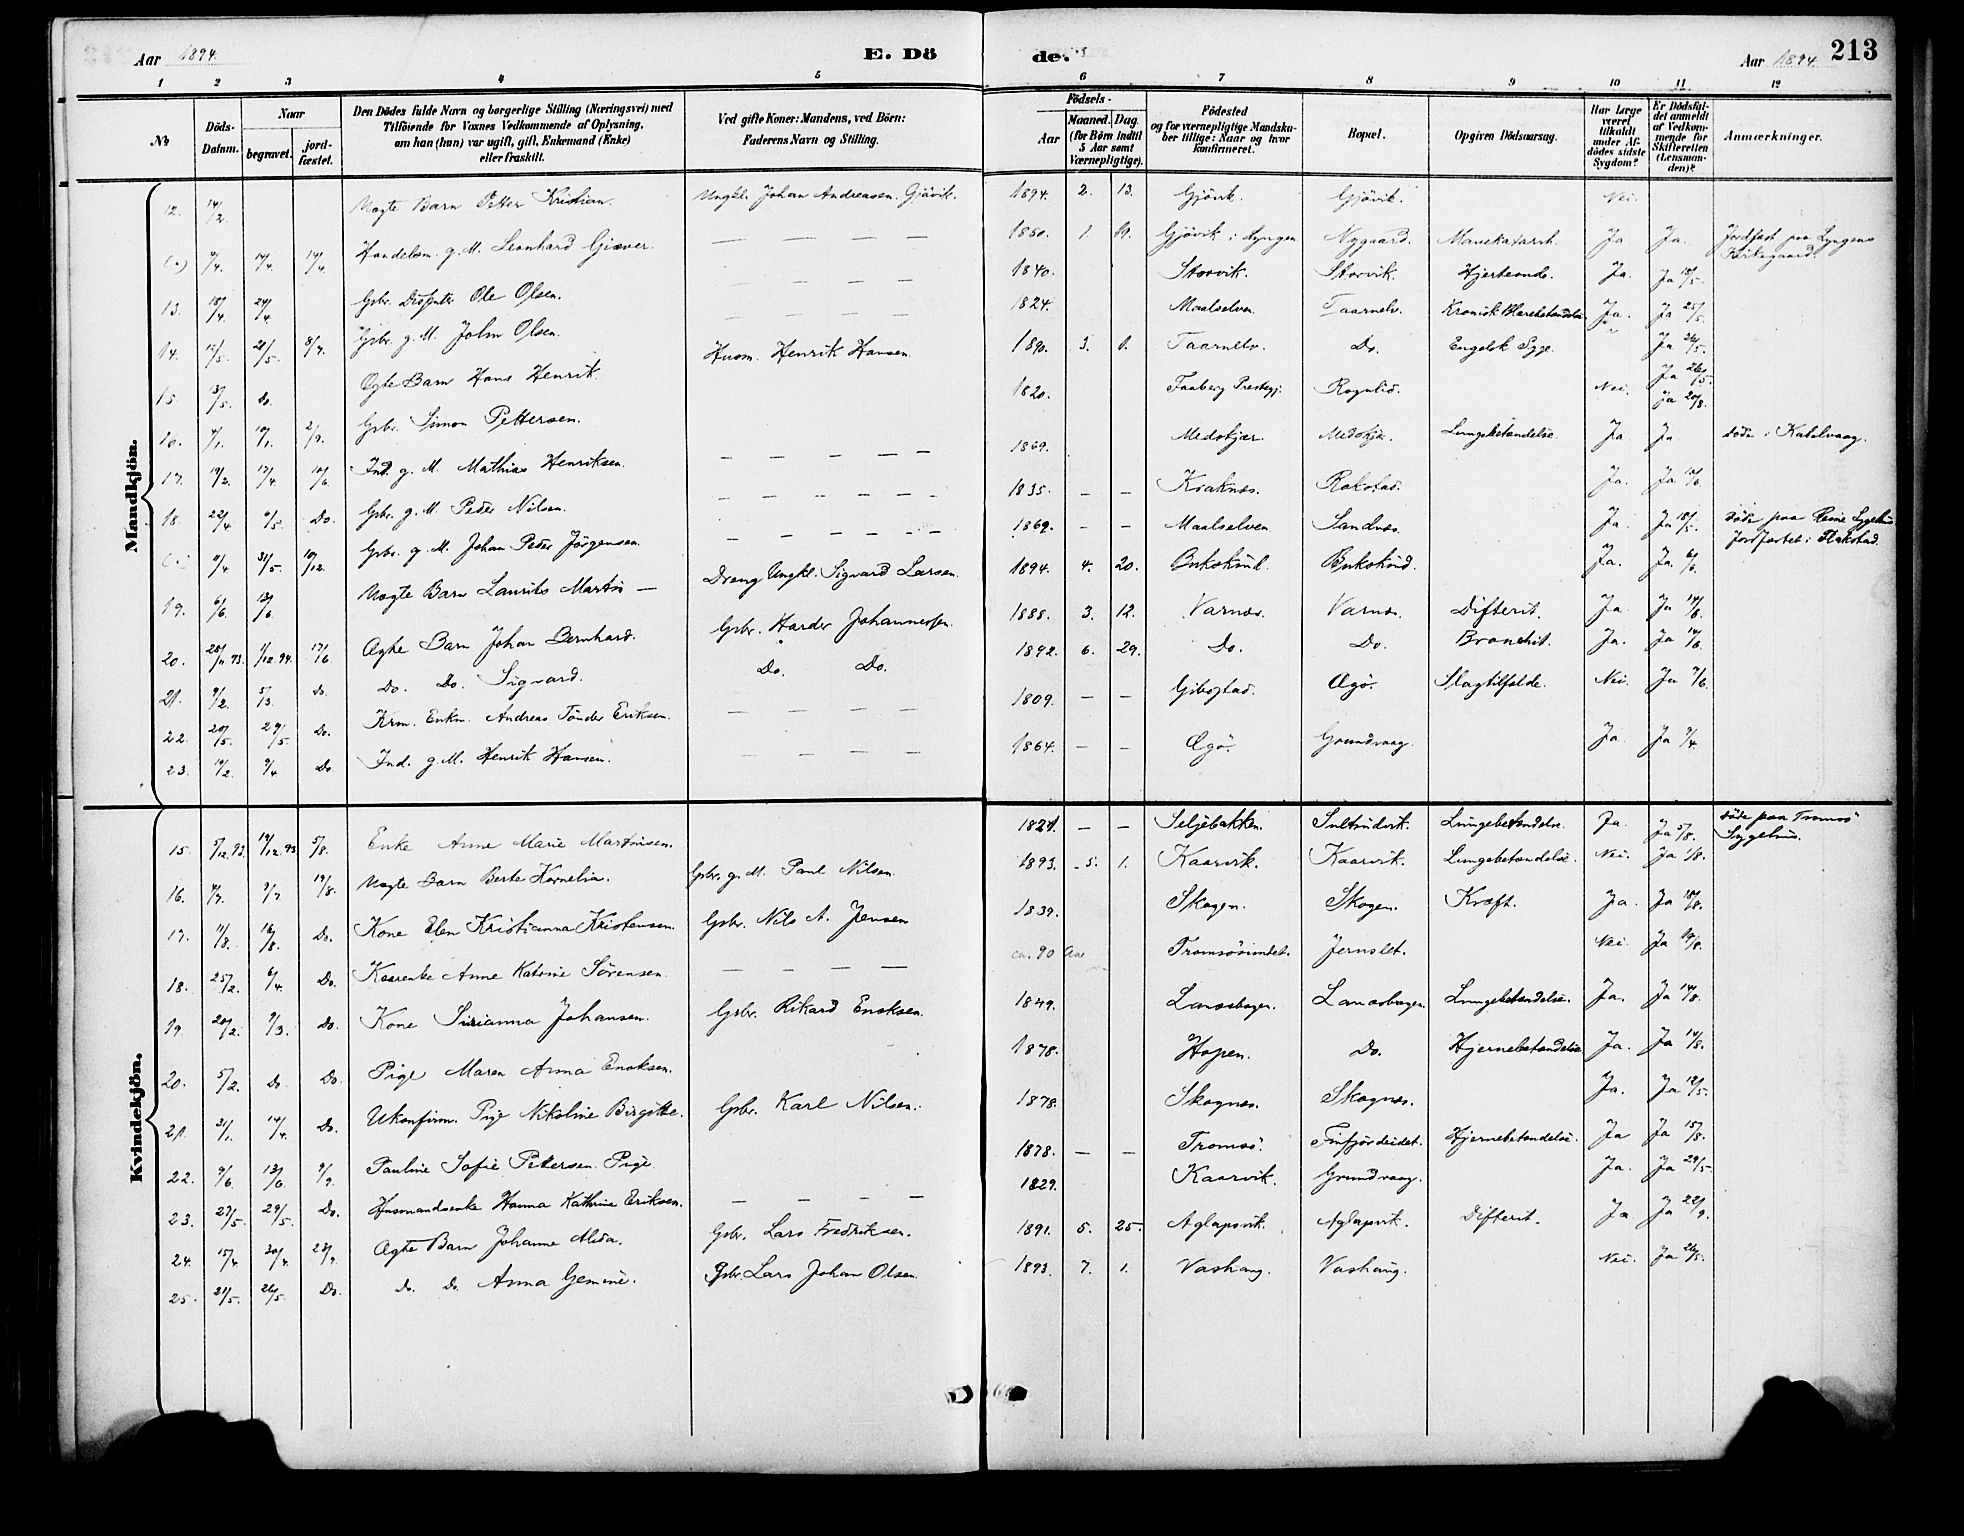 Aar 1894. E. Dö de. Aar 1894. 213
1 2 3 4 5 6 7 8 9 10 11 12
No Döds-Datum. Naar begravet. jord-fæstet. Den Dödes fulde Navn og borgerlige Stilling (Næringsvei) med Tilföiende for Voxnes Vedkommende af Oplysning, om han (hun) var ugift, gift, Enkemand (Enke) eller fraskilt. Ved gifte Koner: Mandens, ved Börn: Faderens Navn og Stilling. Födsels- Aar Maaned. Dag. (for Börn indtil 5 Aar samt Værnepligtige). Födested og for værnepligtige Mandska-ber tillige: Naar og hvor konfirmeret. Bopæl. Opgiven Dödsaarsag. Har Læge været tilkaldt under Af-dödes sidste Sygdom? Er Dödsfal-det anmeldt af Vedkom-mende for Skifteretten (Lensman-den)? Anmærkninger.
Mandkjön.
12. 14/2. Uægte Barn Petter Kristian. Ungkl. Johan Andreasen Gjövik. 1894. 2. 13. Gjövik. Gjövik. Nei.
14/4. 14/4. Handelsm. g. M. Leonhard Giæver. — — — — 1850. 1. 19. Gjövik i Lyngen Nygaard. Mavekatarrh. Ja Ja. Jordfæst paa Lyngens Kirkegaard.
13. 18/4. 24/4. Gbr. Ole Olsen. — — — — 1840. Storvik. Storvik. Hjerteonde. Ja. Ja 18/5.
14. 12/5. 21/5. 8/7. Gbr. g. M. John Olsen. — — — — 1824. Maalselven Taarnelv. Kronisk Blærebetændelse. Ja. Ja 25/5.
15. 13/5. Do. Ægte Barn Hans Henrik. Husm. Henrik Hansen. 1890. 3. 1. Taarnelv. Do. Engelsk Syge. Ja 26/5.
16. 4/1. 10/1. 2/9. Gbr. Simon Pettersen. 1820. Faaberg Prestegj. Rognlid. Nei. Ja 26/5. Ja 20/8.
17. 19/2. 17/4. 10/6. Ind. g. M. Mathias Henriksen. — — — — — 1869. Medskjær. Medskjær. Lungebetændelse. Ja Ja döde i Kabelvaag.
18. 22/4. 6/5. Do. Gbr. g. M. Peder Nilsen. — — — — — 1835. — — Kraknæs. Rakstad. Ja. Ja 10/6.
11/4. 31/5. 10/12. Gbr. g. M. Johan Peder Jörgensen. — — — — — 1869. — — Maalselven Sandnæs. Ja. Ja 18/5. döde paa Reine Sygehus Jordfæstet i Flakstad.
19. 6/6. 13/6. Uægte Barn Laurits Martin — Dreng Ungkl. Sigvard Larsen. 1894. 4. 20. Ja. Ja. 6/6.
20. 1/12.94. 17/6. Ægte Barn Johan Bernhard. Gbr. Harder Johannesen. 1888. 3. 12. Varnæs. Varnæs. Difterit. Ja. Ja 14/6.
21. 9/2. 5/3. Do. Do. Do. Sigvard. Do. Do. 1892. 6. 29. Do. Do. Bronchit. Ja. Ja 14/6.
22. 20/5. 29/5. Do. Enkm. Andreas Tönder Eriksen. — — — — 1809. — — Gibostad. Ægö. Slagtilfælde. Nei. Ja 7/6.
23. 19/2. 9/4. Do Ind. g. M. Henrik Hansen. — — — — 1864. — — Ægö. Grundvaag. Ja. Ja 9/4
Kvindekjön.
15. 5/12.93. 19/12.93 5/8. Enke Anne Marie Martinsen. 1824. — — Seljebakken. Sultindvik. Lungebetændelse. Ja. Ja 5/8. döde paa Tromsö Sygehus.
16. 4/7. 9/7. 19/8. Uægte Barn Berte Kornelia. Gbr. g. M. Paul Nilsen. 1893. 5. 1. Kaarvik. Kaarvik. Lungebetændelse. Nei. Ja 1/8.
17. 11/8. 16/8. Do. Kone Elen Kristianna Kristensen. Gbr. Nils A. Jensen 1839. Skogen. Skogen. Kræft. Ja. Ja 18/8.
18. 25/2. 6/4. Do. Anne Katrine Sörensen. — — — — ca. 90 Aar Tromsösundet. Jernslet. Nei. Ja 19/8.
19. 20/2. 9/3. Do. Kone Sirianna Johansen. Gbr. Rikard Enoksen. 1849. Lanesbogen. Lanesbogen. Lungebetændelse. Ja. Ja 14/8.
20. 5/2. Do Do. Pige Maren Anna Enoksen. 1878. Hopen. Do. Hjernebetændelse Ja. Ja 14/8.
21. 21/1. 14/4. Do. Ukonfirm. Pige Nikoline Birgitte. Gbr. Karl Nilsen. 1878. Skognæs. Skognæs. Ja. Ja 12/5.
22. 9/6. 13/6. 9/9. Pauline Sofie Pettersen. Pige. 1878. — — Tromsö. Finfjordeidet. Hjernebetændelse. Ja Ja 15/8.
23. 27/5. 29/5. Do. Husmandsenke Hanna Kathrine Eriksen. — — — — 1829. Kaarvik. Grundvaag. Ja. Ja 29/5.
24. 15/4. 30/4. 23/9. Ægte Barn Johanne Alida. Gbr. Lars Fredriksen. 1891. 5. 25. Aglapsvik. Aglapsvik. Difterit. Ja Ja 22/9.
25. 21/5. 26/5. Do. Do. Do. Anna Gemine. Gbr. Lars Johan Olsen. 1893. 7. 1. Vashaug. Vashaug. Nei. Ja 26/5.